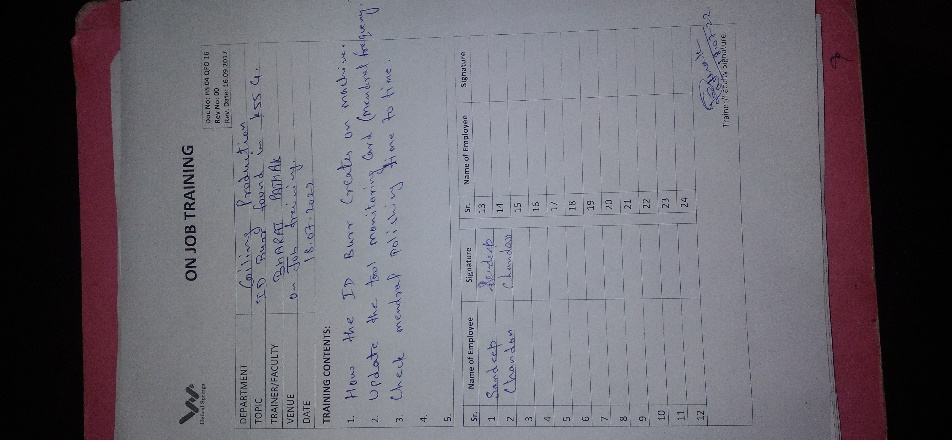 ON JOB TRAINING
Rev No: 00
Rev. Date: 16.09.2017
DEPARTMENT Coiling Production
TOPIC ID Burr found in K55 G.
TRAINER/FACULTY BHARAT
VENUE on Job training
DATE 18.07.2022
TRAINING CONTENTS:
1. How the ID Burr creates on machine.
2. Update the tool monitoring card (mendral frequency.
3. Check mendral polishing time to time.
4.
5.
Sr. Name of Employee Signature Sr. Name of Employee Signature
1 Sandeep Sandeep 13
2 Chandan Chandan 14
3 15
4 16
5 17
6 18
7 19
8 20
9 21
10 22
11 23
12 24
Signature